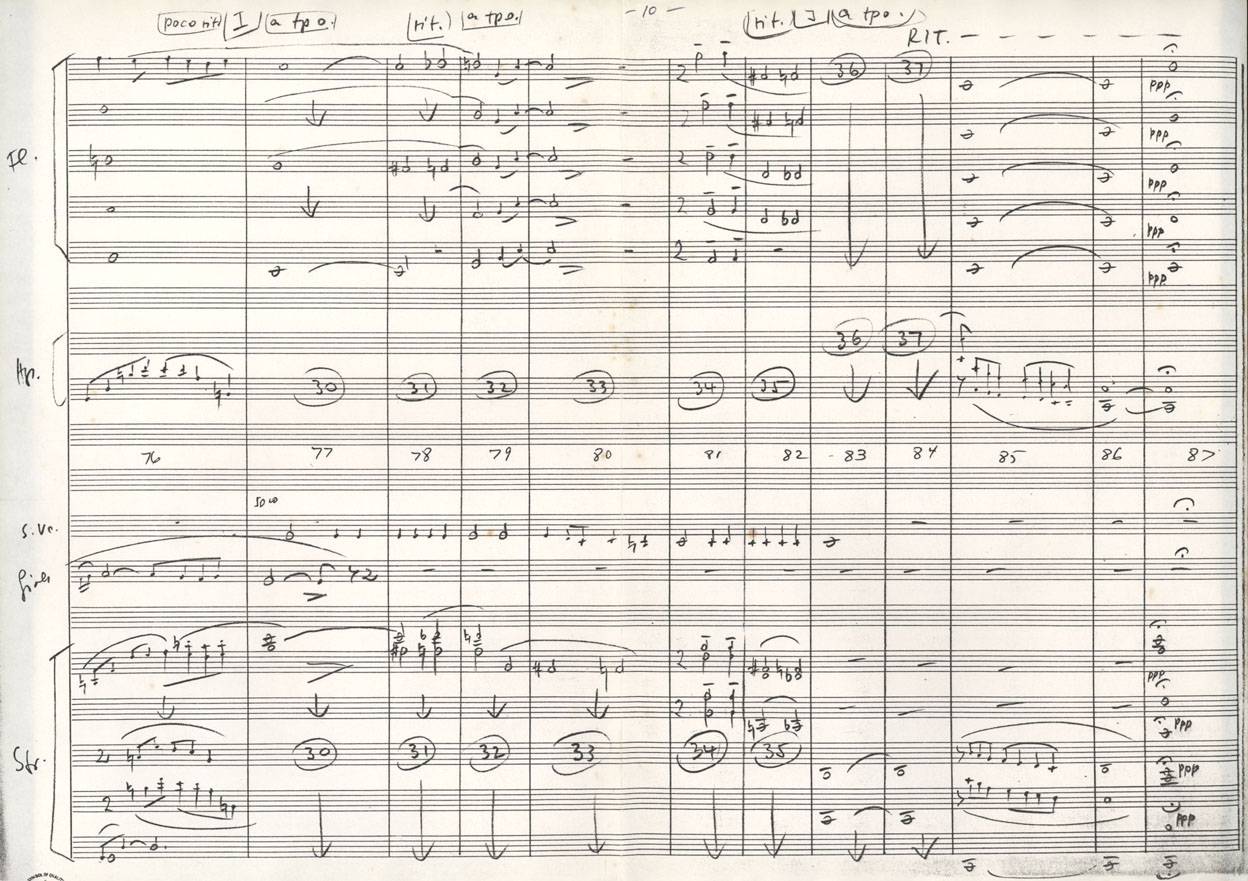 - 10 -
poco rit I a tpo. (rit.) a tpo. (rit.) J a tpo.
RIT. - - - - - -
2 36 37
ppp
2
ppp
Fl. 2
ppp
2
ppp
2
ppp
36 37 f
Hp. 30 31 32 33 34 35
76 77 78 79 80 81 82 83 84 85 86 87
solo
S.Vc.
2
2 ppp
2 ppp
Str. 2 30 31 32 33 34 35 ppp
2 ppp